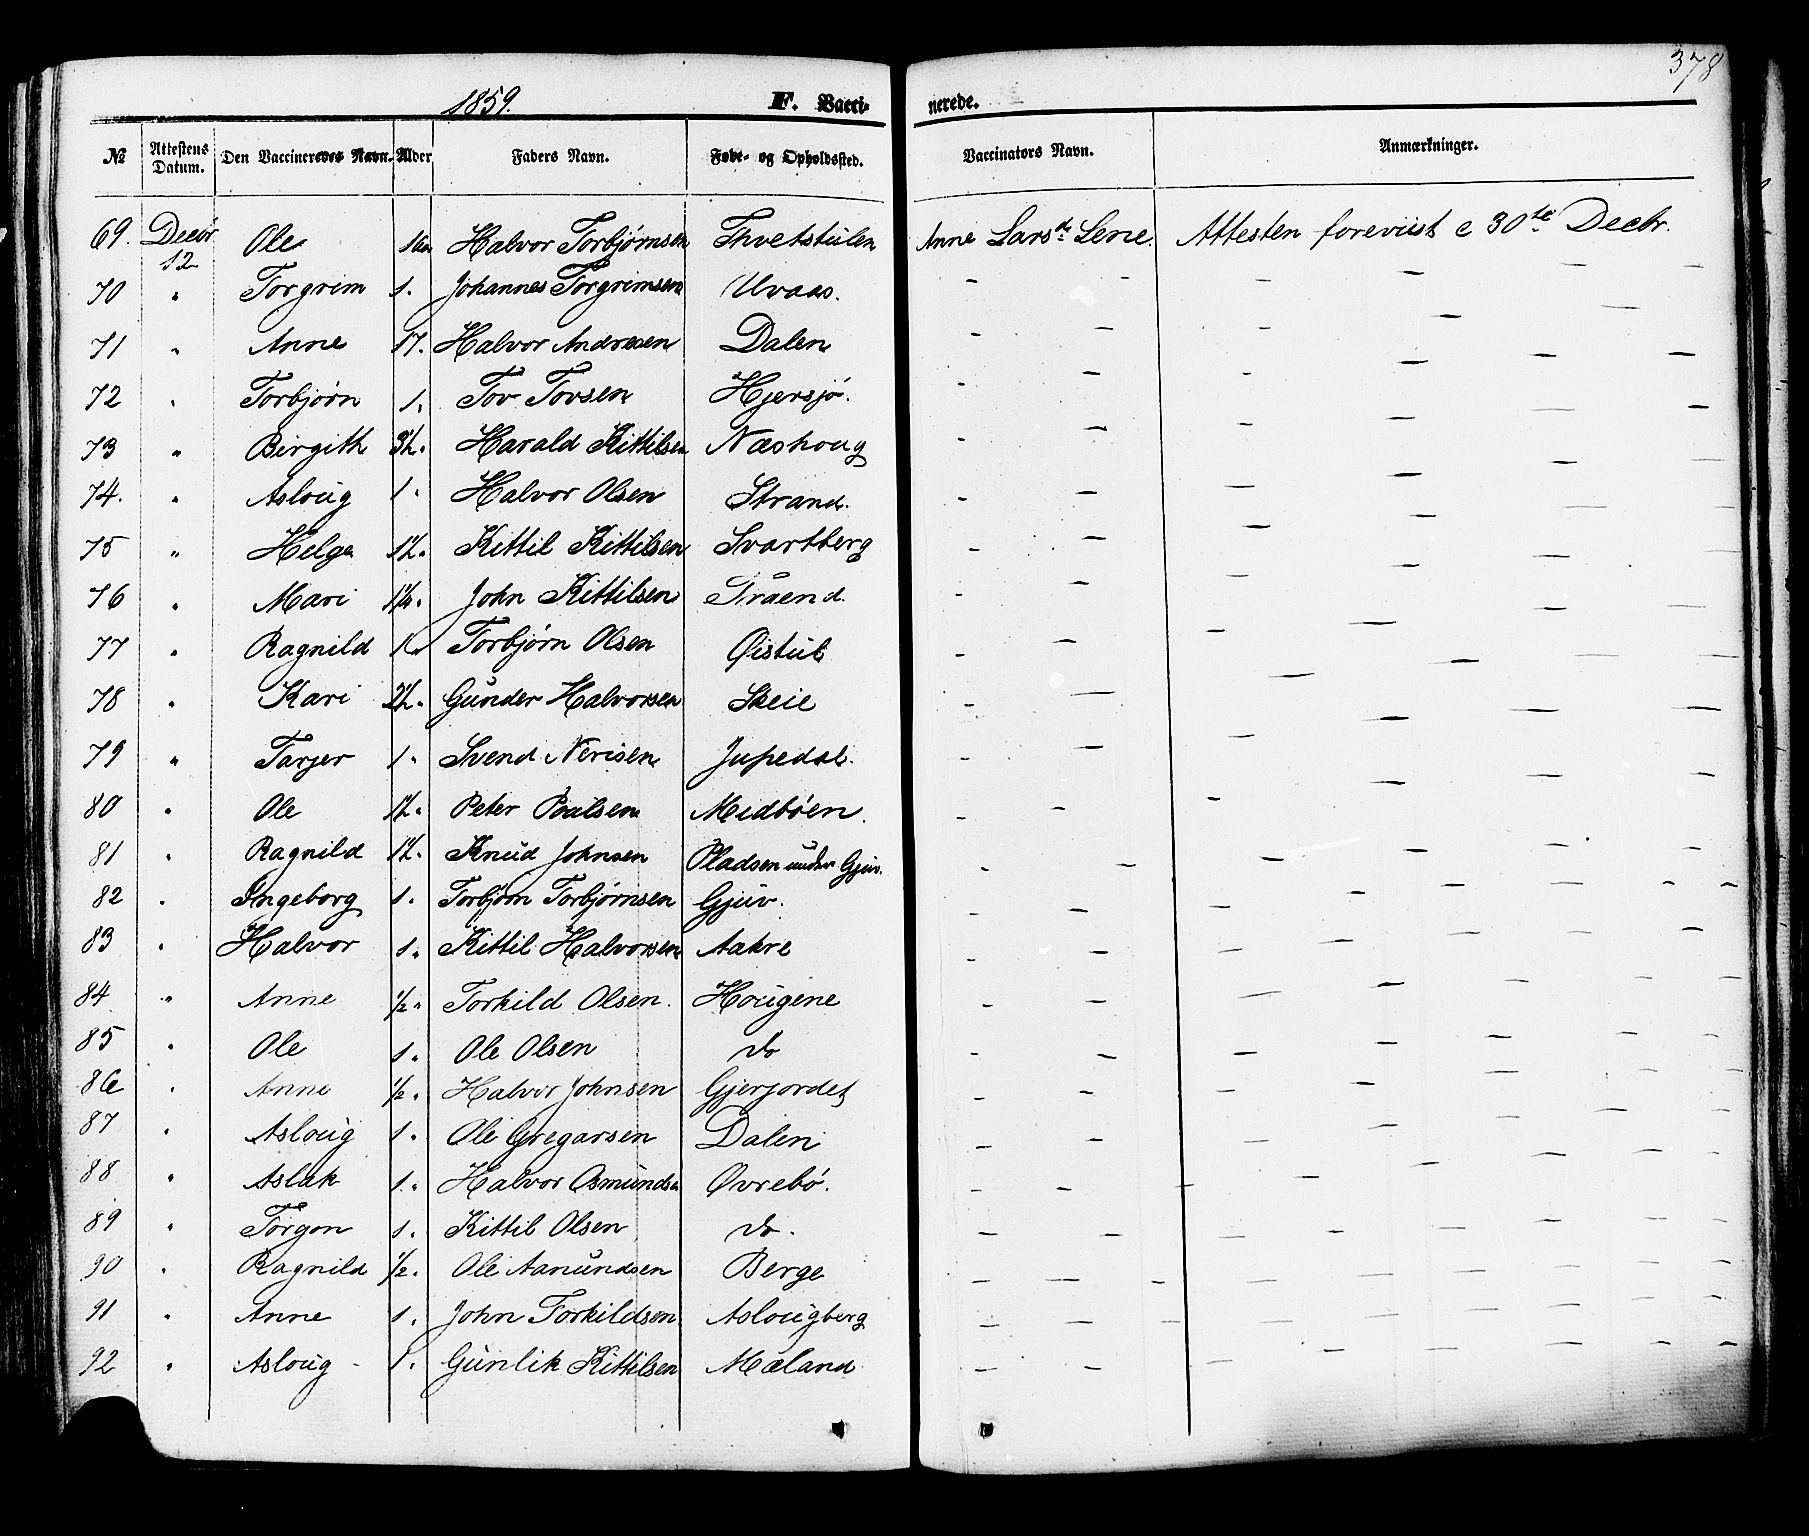 378
1859.
F. Vacci- nerede.
№ Attestens Datum. Den Vaccineredes Navn. Alder Faders Navn. Føde- og Opholdssted. Vaccinators Navn. Anmærkninger.
69. Decbr 12 Ole 1 Halvor Torbjørnsen Thvetstulen Anne Larsdtr Lene. Attesten foreviist e 30te Decbr.
70 " Torgrim 1. Johannes Torgrimsen Uvaas. — — — — —
71 " Anne 17. Halvor Andresen Dalen — — — — —
72 " Torbjørn 1. Tov Tovsen Hjersjø. — — — — —
73 " Birgith 3½ " Harald Kittilsen Næshoug — — — — —
74. " Asloug 1 " Halvor Olsen Strand. — — — — —
75 " Helge 1½ " Kittil Kittilsen Svartberg — — — — —
76 " Mari 1¼ " John Kittilsen Traend. — — — — —
77 " Ragnild 1 " Torbjørn Olsen Øistul — — — — —
78 " Kari 2½ " Gunder Halvorsen Skeie — — — — —
79 " Tarjer 1 " Svend Nerisen Jupedal. — — — — —
80 " Ole 1½ " Peter Poulsen Midbøen. — — — — —
81 " Ragnild 1½ " Knud Johnsen Pladsen under Gjuv. — — — — —
82 " Ingeborg 1. Torbjørn Torbjørnsen Gjuv. — — — — —
83 " Halvor 1. Kittil Halvorsen Aakre — — — — —
84 " Anne ½ " Torkild Olsen. Hougene — — — — —
85 " Ole 1 " Ole Olsen do — — — — —
86 " Anne ½ " Halvor Johnsen Gjerjordet — — — — —
87 " Asloug 1 " Ole Gregarsen Dalen — — — — —
88 " Aslak 1. Halvor Osmundsn Øvrebø. — — — — —
89 " Torgon 1. Kittil Olsen do. — — — — —
90 " Ragnild ½ " Ole Aanundsen Berge — — — — —
91 " Anne 1. John Torkildsen Aslougberg — — — — —
92 " Asloug - 1. Gunlik Kittilsen Mæland — — — — —